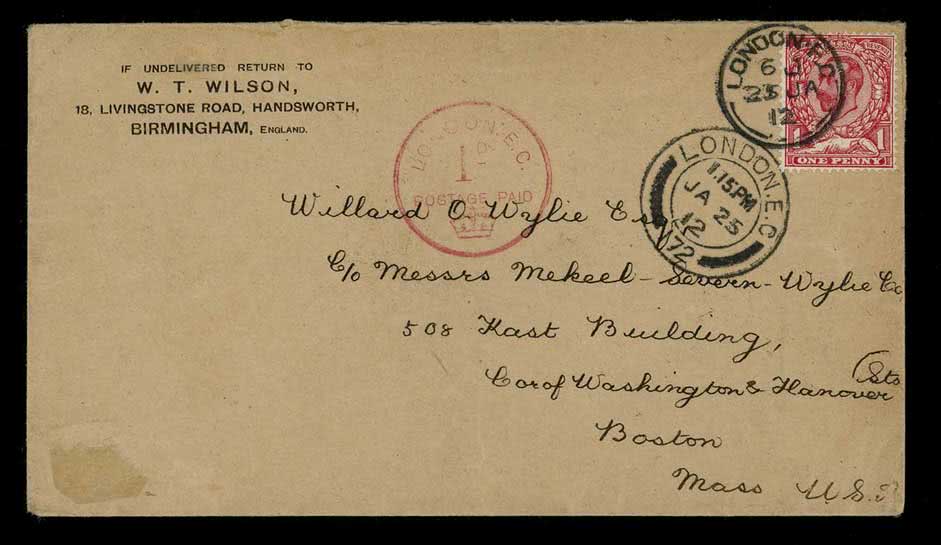 IF UNDELIVERED RETURN TO
W. T. WILSON,
18, LIVINGSTONE ROAD, HANDSWORTH,
BIRMINGHAM, ENGLAND.
LONDON.E.C.
1D
POSTAGE PAID
LONDON.E.C
6
25 JA
12
ONE PENNY
1 1
LONDON.E.C
1.15PM
JA 25
12
72
Willard O. Wylie Esq
C/o Messrs Mekeel-Severn-Wylie Co
508 Kast Building,
Cor of Washington & Hanover
(Sts
Boston
Mass U.S.